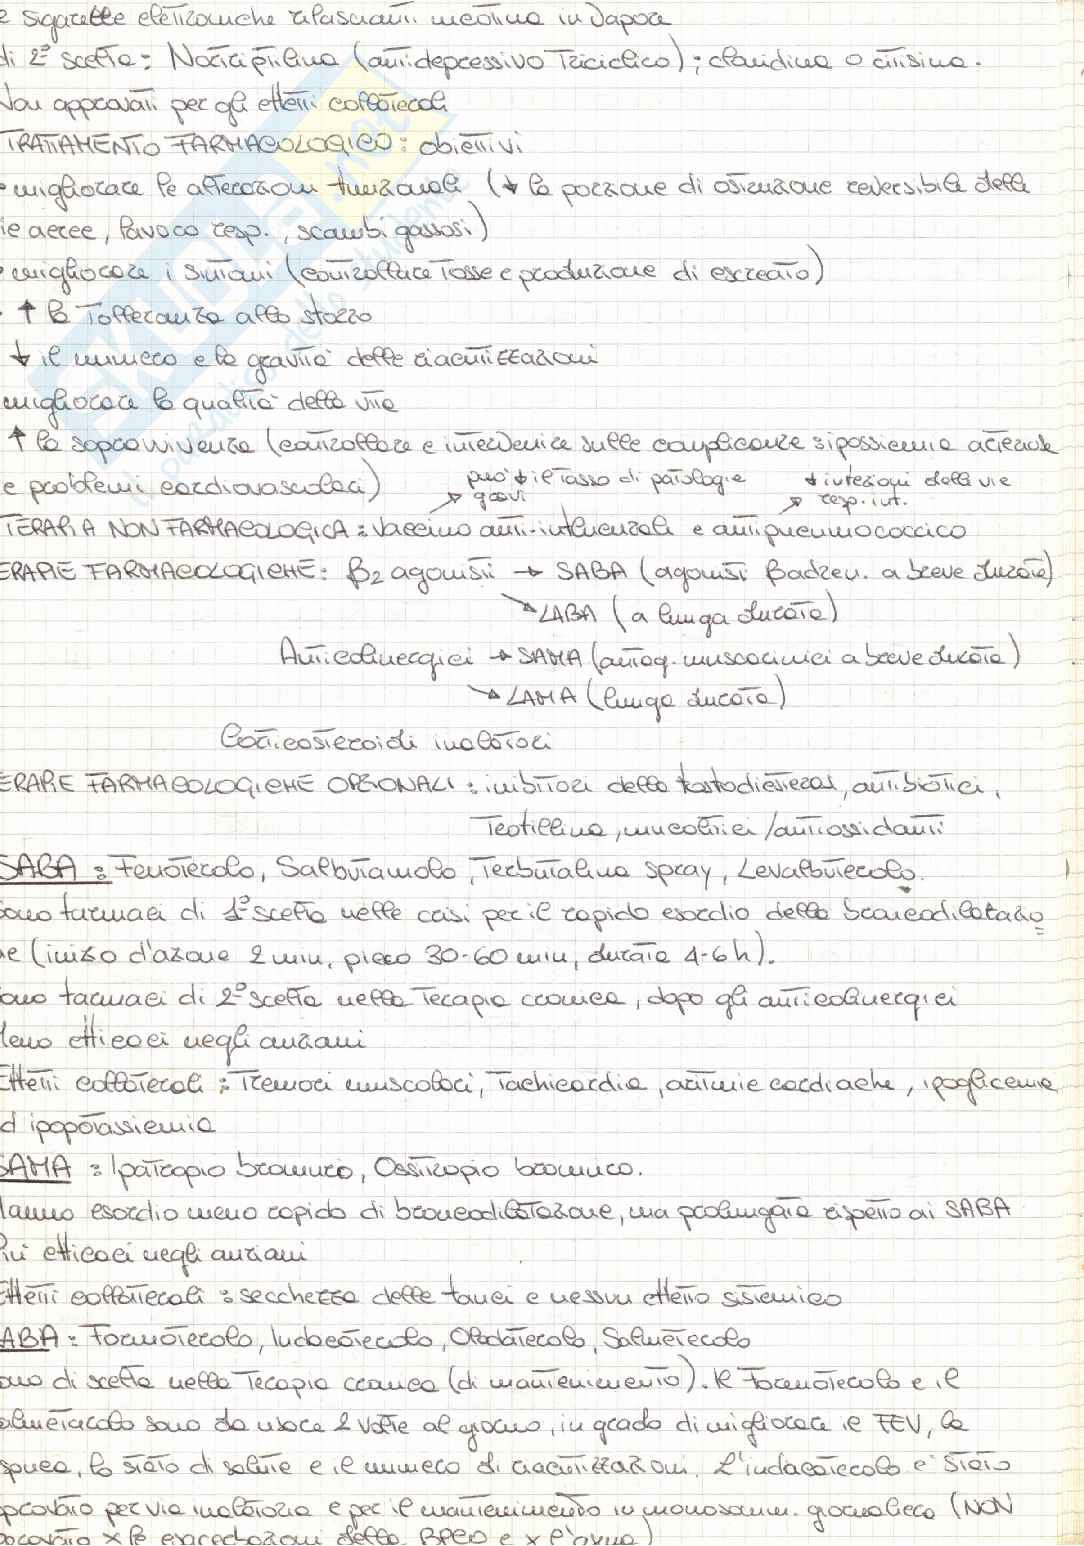 e sigarette elettroniche rilascianti nicotina in vapore
di 2° scelta: Nortriptilina (antidepressivo triciclico); clonidina o citisina.
Non approvati per gli effetti collaterali
TRATTAMENTO FARMACOLOGICO: obiettivi
• migliorare le alterazioni funzionali (↓ la porzione di ostruzione reversibile delle
ie aeree, lavoro resp., scambi gassosi)
• migliorare i sintomi (controllare tosse e produzione di escreato)
• ↑ la tolleranza allo sforzo
↓ il numero e la gravità delle riacutizzazioni
migliorare la qualità della vita
↑ la sopravvivenza (controllare e intervenire sulle complicanze ipossiemia arteriosa
e problemi cardiovascolari)
può ↓ il tasso di patologie gravi
↓ infezioni delle vie resp. inf.
TERAPIA NON FARMACOLOGICA: vaccino anti-influenzali e antipneumococcico
ERAPIE FARMACOLOGICHE: β2 agonisti → SABA (agonisti βadren. a breve durata)
→ LABA (a lunga durata)
Anticolinergici → SAMA (antag. muscarinici a breve durata)
→ LAMA (lunga durata)
Corticosteroidi inalatori
ERAPIE FARMACOLOGICHE OPZIONALI: inibitori della fosfodiesterasi, antibiotici,
Teofillina, mucolitici/antiossidanti
SABA: Fenoterolo, Salbutamolo, Terbutalina spray, Levalbuterolo.
ono farmaci di 1° scelta nelle crisi per il rapido esordio della broncodilatazio
ne (inizio d'azione 2 min, picco 30-60 min, durata 4-6 h).
ono farmaci di 2° scelta nella terapia cronica, dopo gli anticolinergici
Meno efficaci negli anziani
Effetti collaterali: Tremori muscolari, Tachicardia, aritmie cardiache, ipoglicemia
d ipopotassiemia
SAMA: Ipatropio bromuro, Ossitropio bromuro.
Hanno esordio meno rapido di broncodilatazione, ma prolungata rispetto ai SABA
Più efficaci negli anziani
Effetti collaterali: secchezza delle fauci e nessun effetto sistemico
ABA: Formoterolo, Indacaterolo, Olodaterolo, Salmeterolo
ono di scelta nella terapia cronica (di mantenimento). Il Formoterolo e il
almeterolo sono da usare 2 volte al giorno, in grado di migliorare il FEV, la
spnea, lo stato di salute e il numero di riacutizzazioni. L'indacaterolo è stato
pprovato per via inalatoria e per il mantenimento in monosomm. giornaliera (NON
pprovato x le esacerbazioni della BPCO e x l'asma)
SKUOLA.net
il paradiso dello studente